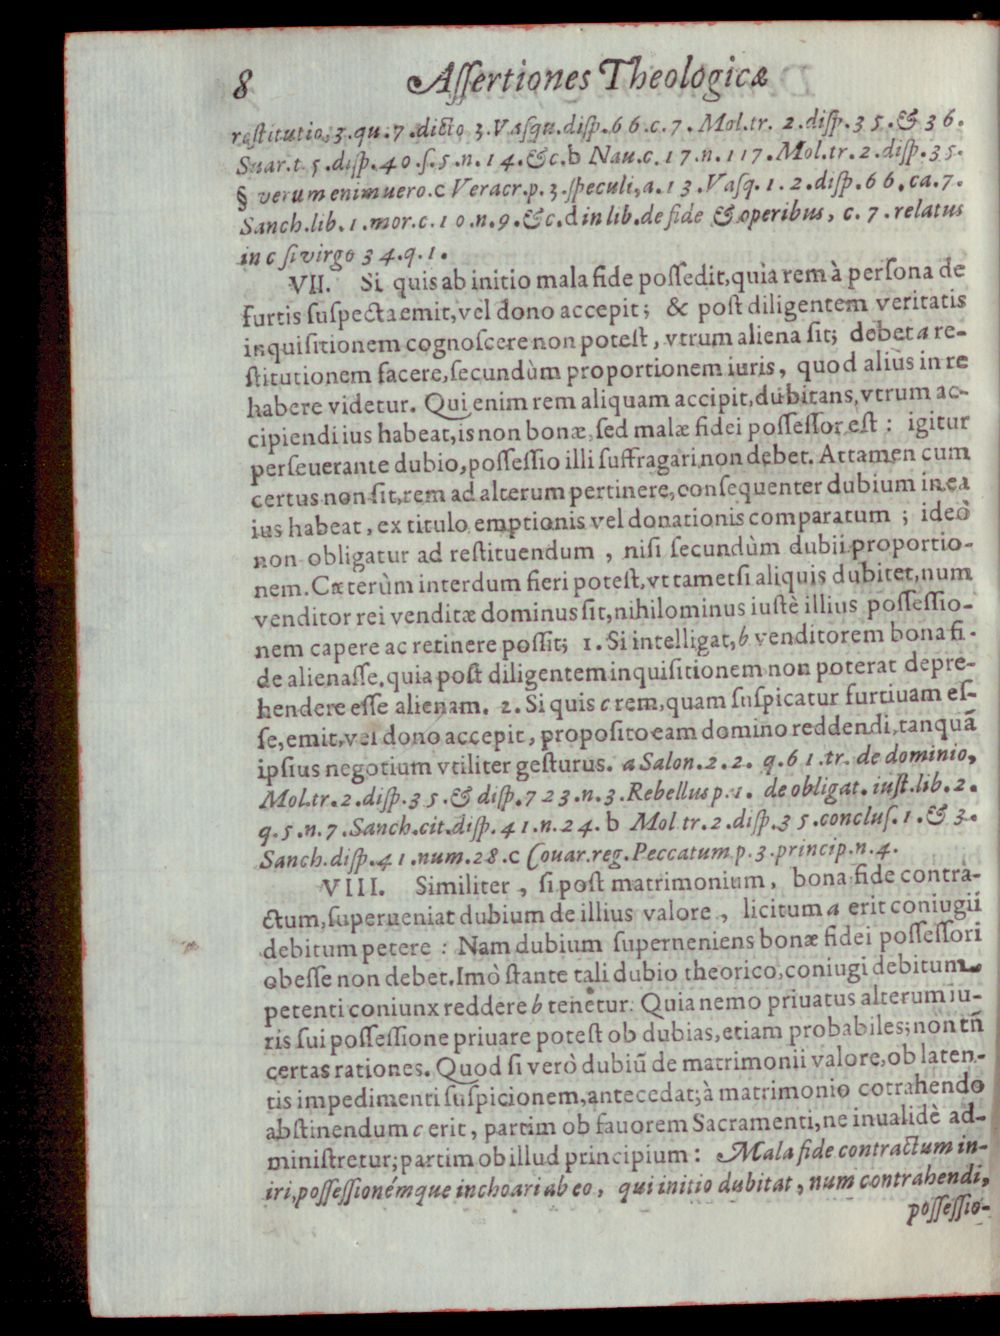 8 Aſſertiones Theologicæ
reſtitutio. 3. qu. 7. dicto 3. Vaſqu. diſp. 66. c. 7. Mol. tr. 2. diſp. 35. & 36.
Suar. t. 5. diſp. 40. ſ. 5. n. 14. &c. b Nau. c. 17. n. 117. Mol. tr. 2. diſp. 35.
§ verum enimuero. c Veracr. p. 3. ſpeculi, a. 13. Vaſq. 1. 2. diſp. 66. ca. 7.
Sanch. lib. 1. mor. c. 10. n. 9. &c. d in lib. de fide & operibus, c. 7. relatus
in c ſi virgo 34. q. 1.
VII. Si quis ab initio mala fide poſſedit, quia rem à perſona de
furtis ſuſpecta emit, vel dono accepit; & poſt diligentem veritatis
inquiſitionem cognoſcere non poteſt, vtrum aliena ſit; debet a re-
ſtitutionem facere, ſecundùm proportionem iuris, quod alius in re
habere videtur. Qui enim rem aliquam accipit, dubitans, vtrum ac-
cipiendi ius habeat, is non bonæ, ſed malæ fidei poſſeſſor eſt: igitur
perſeuerante dubio, poſſeſſio illi ſuffragari non debet. Attamen cum
certus non ſit, rem ad alterum pertinere, conſequenter dubium in ea
ius habeat, ex titulo emptionis vel donationis comparatum; ideò
non obligatur ad reſtituendum, niſi ſecundùm dubii proportio-
nem. Cæterùm interdum fieri poteſt, vt tametſi aliquis dubitet, num
venditor rei venditæ dominus ſit, nihilominus iuſtè illius poſſeſſio-
nem capere ac retinere poſſit; 1. Si intelligat, b venditorem bona fi-
de alienaſſe, quia poſt diligentem inquiſitionem non poterat depre-
hendere eſſe alienam. 2. Si quis c rem, quam ſuſpicatur furtiuam eſ-
ſe, emit, vel dono accepit, propoſito eam domino reddendi, tanquã
ipſius negotium vtiliter geſturus. a Salon. 2. 2. q. 61. tr. de dominio,
Mol. tr. 2. diſp. 35. & diſp. 723. n. 3. Rebellus p. 1. de obligat. iuſt. lib. 2.
q. 5. n. 7. Sanch. cit. diſp. 41. n. 24. b Mol. tr. 2. diſp. 35. concluſ. 1. & 3.
Sanch. diſp. 41. num. 28. c Couar. reg. Peccatum p. 3. princip. n. 4.
VIII. Similiter, ſi poſt matrimonium, bona fide contra-
ctum, ſuperueniat dubium de illius valore, licitum a erit coniugii
debitum petere: Nam dubium ſuperneniens bonæ fidei poſſeſſori
obeſſe non debet. Imò ſtante tali dubio theorico, coniugi debitum
petenti coniunx reddere b tenetur. Quia nemo priuatus alterum iu-
ris ſui poſſeſſione priuare poteſt ob dubias, etiam probabiles; non tñ
certas rationes. Quod ſi verò dubiũ de matrimonii valore, ob laten-
tis impedimenti ſuſpicionem, antecedat; à matrimonio cotrahendo
abſtinendum c erit, partim ob fauorem Sacramenti, ne inualidè ad-
miniſtretur; partim ob illud principium: Mala fide contractum in-
iri, poſſeſſionémque inchoari ab eo, qui initio dubitat, num contrahendi,
poſſeſſio-